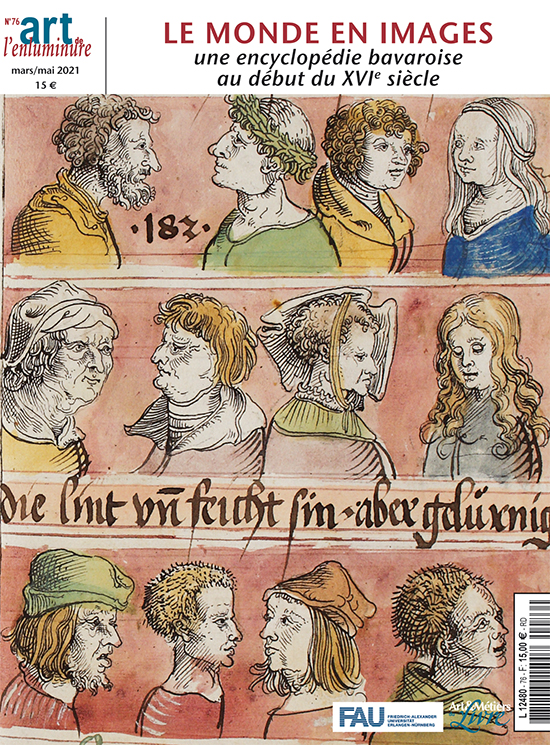 N°76
art de
l'enluminure
mars/mai 2021
15 €
LE MONDE EN IMAGES
une encyclopédie bavaroise
au début du XVIe siècle
·183·
die lint vn̄ feicht sin · aber gelüxnig
FAU
FRIEDRICH-ALEXANDER
UNIVERSITÄT
ERLANGEN-NÜRNBERG
Art & Métiers
Livre
L 12480 - 76 - F: 15,00 € - RD